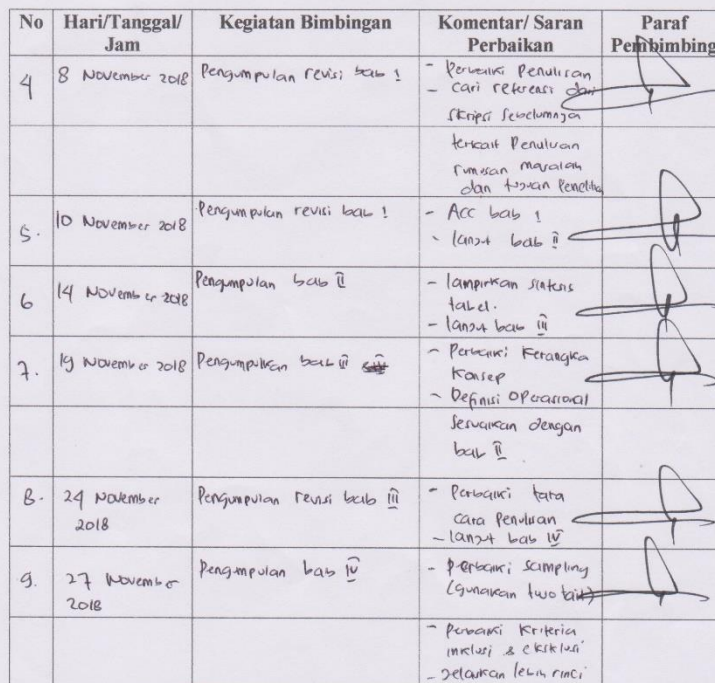 No Hari/Tanggal/ Kegiatan Bimbingan Komentar/ Saran Paraf
Jam Perbaikan Pembimbing
4 8 November 2018 Pengumpulan revisi bab I - Perbaiki Penulisan
- Cari referensi dari
skripsi sebelumnya
terkait Penulisan
rumusan masalah
dan tujuan Peneliti
5. 10 November 2018 Pengumpulan revisi bab I - Acc bab I
- lanjut bab II
6 14 November 2018 Pengumpulan bab II - lampirkan sintesis
tabel.
- lanjut bab III
7. 19 November 2018 Pengumpulkan bab III - Perbaiki Kerangka
Konsep
- Definisi Operasional
Sesuaikan dengan
bab II
8. 24 November Pengumpulan revisi bab III - Perbaiki tata
2018 cara Penulisan
- lanjut bab IV
9. 27 November Pengumpulan bab IV - Perbaiki Sampling
2018 (gunakan two tail)
- Perbaiki Kriteria
inklusi & eksklusi
- Jelaskan lebih rinci